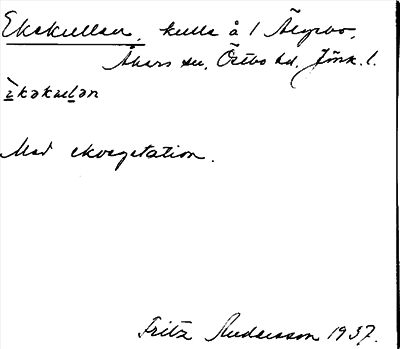 Ekekullen, kulle å 1 Älgebo,
Åkers sn, Östbo hd, Jönk. l.
èkəkuḷən
Med ekvegetation.
Fritz Andersson 1937.